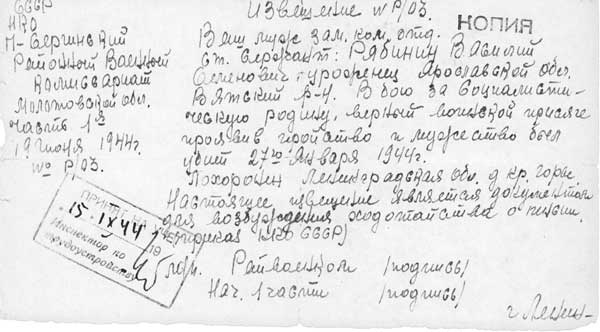 СССР
НКО
П-Сергинский
Районный Военный
Комиссариат
Молотовской обл.
Часть 1я
19 июня 1944г.
№ Р/03.
Извещение № Р/03.
КОПИЯ
Ваш муж зам. ком. отд.
ст. сержант: Рябинин Василий
Семенович уроженец Ярославской обл.
Вятский р-н. В бою за Социалисти-
ческую родину, верный воинской присяге
проявив геройство и мужество был
убит 27го Января 1944г.
Похоронен Ленинградская обл. д. кр. горы
Настоящее извещение является документом
для возбуждения ходатайства о пенсии.
(приказ НКО СССР)
15. IX 44
19
Инспектор по
трудоустройству
Райвоенком /подпись/
Нач. 1 части /подпись/